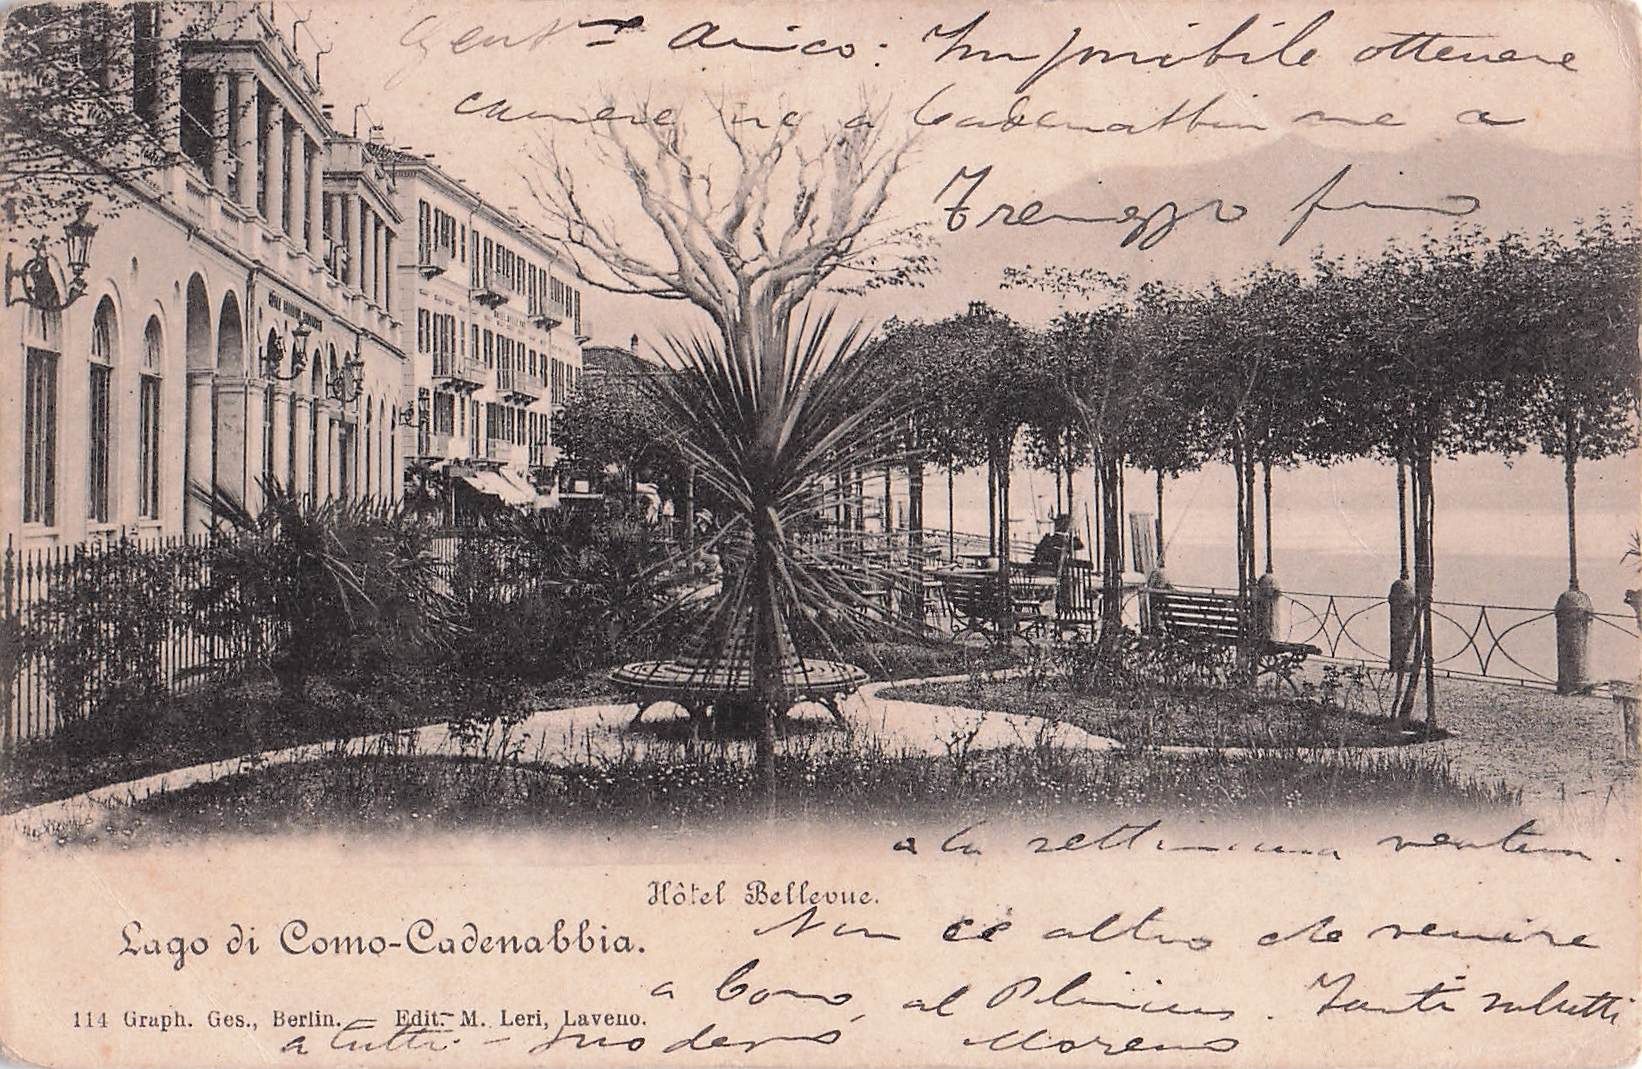 Gent.mo Amico: Impossibile ottenere
camere nè a Cadenabbia nè a
Tremezzo fino
a la settimana ventura.
Hôtel Bellevue.
Non c'è altro che venire
Lago di Como-Cadenabbia.
a Como, al Plinius. Tanti saluti
114 Graph. Ges., Berlin. — Edit. M. Leri, Laveno.
a tutti. — Suo devmo Moreno